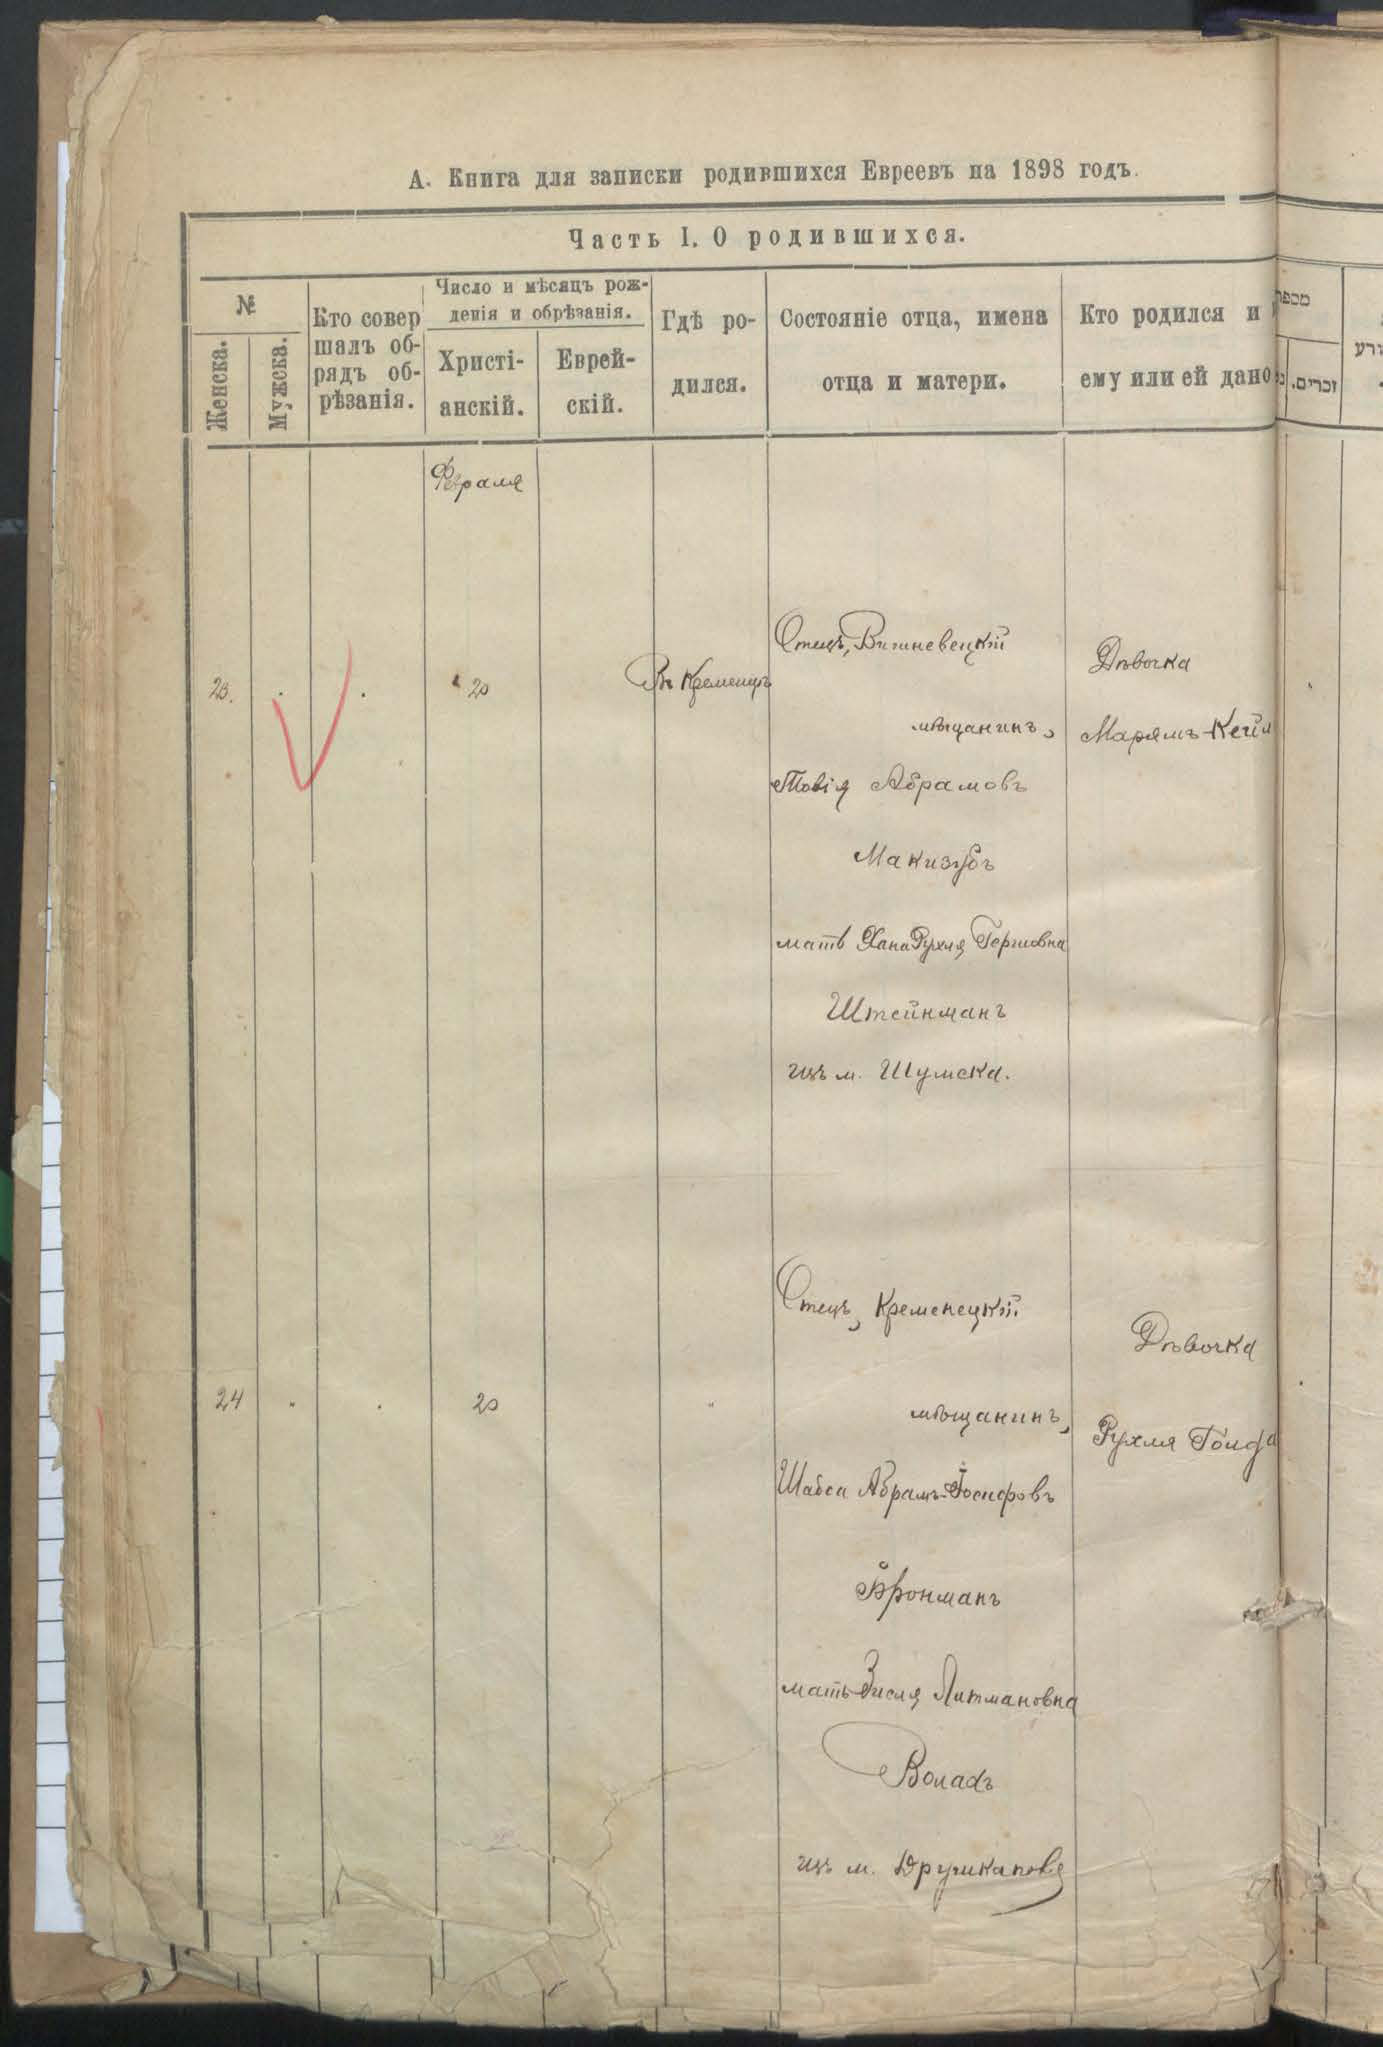 А. Книга для записки родившихся Евреевъ на 1898 годъ.
Часть I. О родившихся.
№
Женска.
Мужска.
Кто совер
шалъ об-
рядъ об-
рѣзанія.
Число и мѣсяцъ рож-
денія и обрѣзанія.
Христі-
анскій.
Еврей-
скій.
Гдѣ ро-
дился.
Состояніе отца, имена
отца и матери.
Кто родился и
ему или ей дано
מספר
זכרים.
Февраля
23.
20
Въ Кременцѣ
Отецъ, Вишневецкій
мѣщанинъ,
Товія Абрамовъ
Макизубъ
мать Хана Рухля Гершовна
Штейнманъ
изъ м. Шумска.
Дѣвочка
Марямъ-Кейл
24
20
"
Отецъ, Кременецкій
мѣщанинъ,
Шабса Абрамъ-Іосифовъ
Бронманъ
мать Зисля Литмановна
Волахъ
изъ м.
Дѣвочка
Рухля Голда